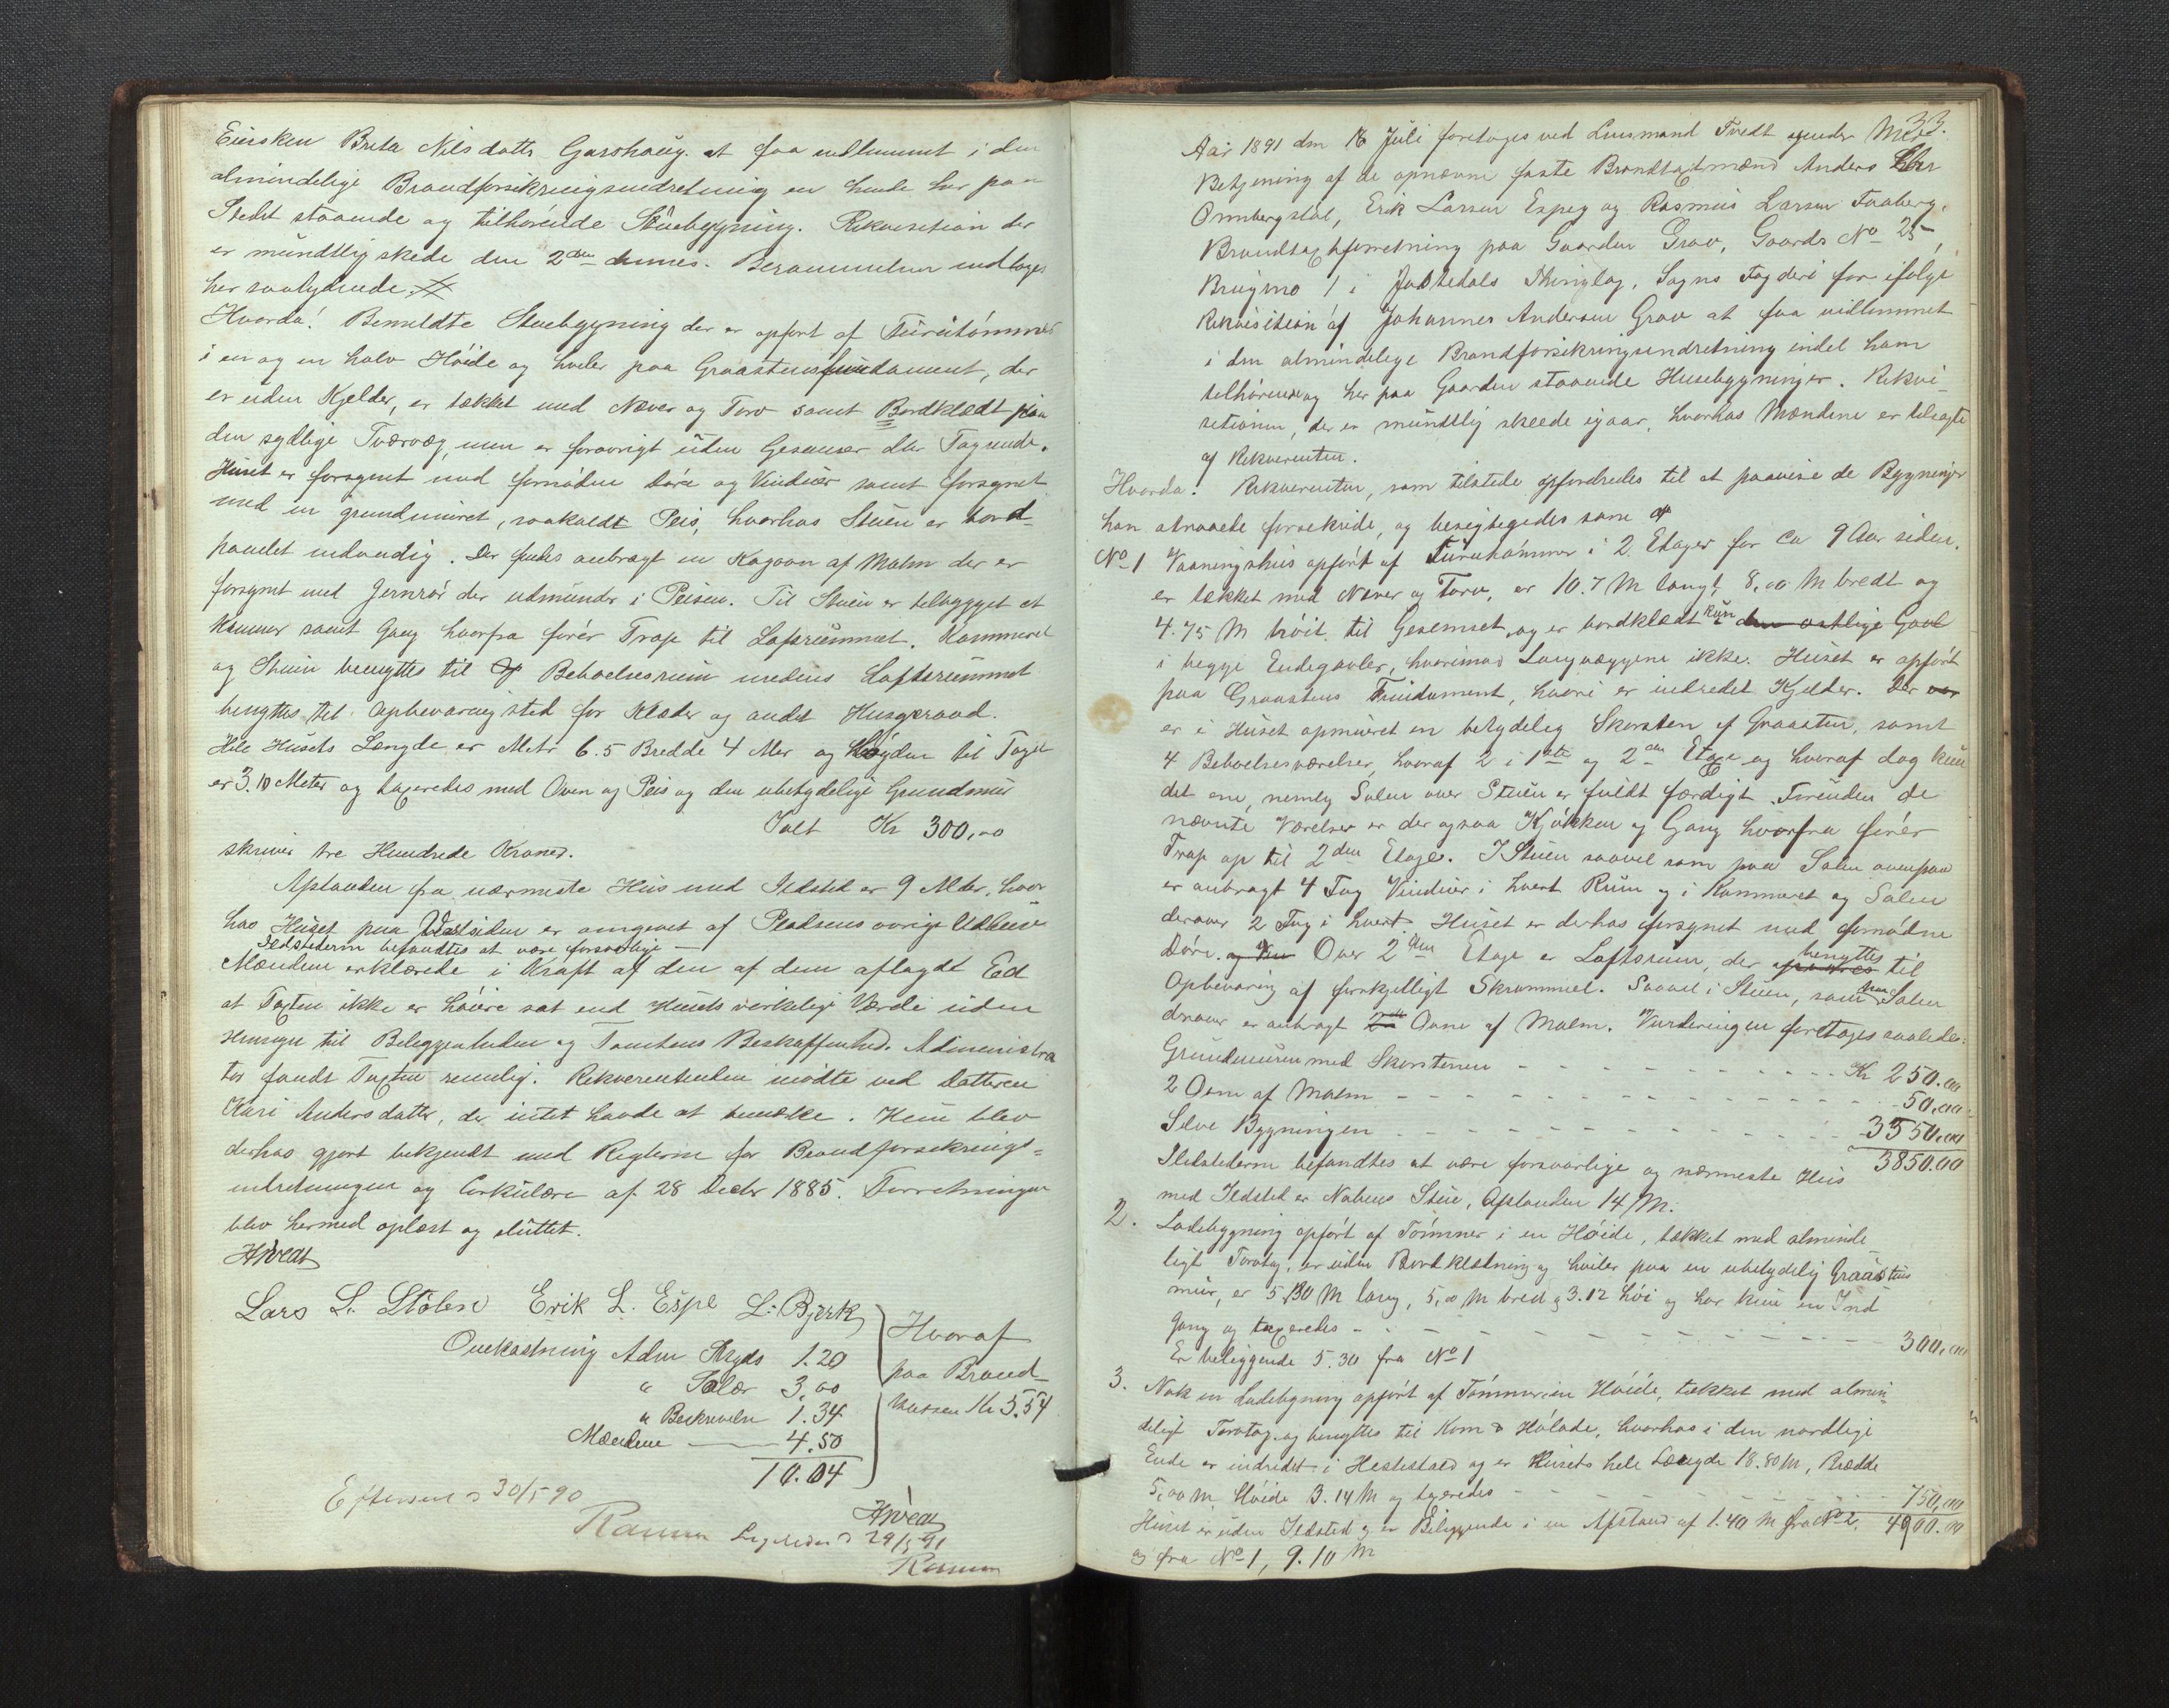 Enken Brita Nilsdatter Garshaug at faa indlemmet i den
almindelige Brandforsikringsindretning en hende her paa
Stedet staaende og tilhørende Stuebygning. Rekvisition der
er mundtlig skede den 2den dennes. Berammelsen indtages
her saalydende #
Hvorda! Bemeldte Stuebygning der er opført af Furutømmer
i en og en halv Høide og hviler paa Graastensfundament, der
er uden Kjelder, er tækket med Næver og Torv samt Bordklædt paa
den sydlige Tværvæg, men er forøvrigt uden Gesemser eller Tagrende.
Huset er forsynet med fornødne Døre og Vinduer samt forsynet
med en grundmuret, saakaldt Peis, hvorhos Stuen er bord-
panelet indvendig. Der findes anbragt en Kogovn af Malm der er
forsynet med Jernrør der udmunder i Peisen. Til Stuen er tilbygget et
Kammer samt Gang hvorfra fører Trap til Loftsrummet. Kammeret
og Stuen benyttes til Beboelsesrum medens Loftsrummet
benyttes til Opbevaringssted for Klæder og andet Husgeraad.
Hele Husets Længde er Metr 6.5 Bredde 4 Mer og Høyden til Taget
er 3.10 Meter og taxeredes med Oven og Peis og den ubetydelige Grundmur
Ialt Kr 300,00
skriver tre Hundrede Kroner.
Afstanden fra nærmeste Hus med Ildsted er 9 Alder, hvor
hos Huset paa Vestsiden er omgivet af Pladsens øvrige Udhuse
Ildstederne befandtes at være forsvarlige —
Mændene erklærede i Kraft af den af dem aflagdt Eed
at Taxten ikke er høiere sat end Husets virkelige Værdi uden
Hensyn til Beliggenheden og Tomtens Beskaffenhed. Administra
tor fandt Taxten rimelig. Rekverentinden mødte ved Datteren
Kari Andersdatter, der intet havde at bemærke. Hun blev
derhos gjort bekjendt med Reglerne for Brandforsikrings-
indretningen og Cirkulære af 28 Decbr 1885. Forretningen
blev hermed oplæst og sluttet.
Lars L. Stølen Erik L. Espe L. Bjerk
Omkostning Adm Skyds 1.20
" Salær 3,00
" Beskrivelse 1.34
Mændene — 4.50
10.04
Hvoraf
paa Brand-
kassen Kr 5.54
Efterseet 30/5 90
29/5 91
33.
Aar 1891 den 16 Juli foretoges ved Lensmand Tvedt under Med
Betjening af de opnævnte faste Brandtaxtmænd Anders
Ormbergstøl, Erik Larsen Espeg og Rasmus Larsen Faaberg,
Brandtaxtforretning paa Gaarden Grov, Gaards No 25,
Brugsno 1 i Jostedals Thinglag, Sogns Fogderi for ifølge
Rekvisition af Johannes Andersen Grov at faa indlemmet
i den almindelige Brandforsikringsindretning endel ham
tilhørende og her paa Gaarden staaende Husebygninger. Rekvi-
sitionen, der er mundtlig skeede igaar, hvorhos Mændene er tilsagte
af Rekverenten.
Hvorda! Rekverenten, som tilstede opfordredes til at paavise de Bygninger
han attraaede forsikrede, og besigtegedes som
No 1 Vaaningshus opført af Furutømmer i 2 Etager for ca 9 Aar siden,
er tækket med Næver og Torv, er 10.7 M langt, 8,00 M bredt og
4.75 M høit, til Gesemset, og er bordklædt kun den østlige Gavl
i begge Endegavler, hvorimod Langvæggene ikke. Huset er opført
paa Graastens Fundament, hvori er indredet Kjelder. Der var
er i Huset opmuret en betydelig Skorsten af Graasten, samt
4 Beboelsesværelser, hvoraf 2 i 1ste og 2den Etage og hvoraf dog kun
det ene, nemlig Salen over Stuen er fuldt færdigt. Foruden de
nævnte Værelser er der ogsaa Kjøkken og Gang hvorfra fører
Trap op til 2den Etage. I Stuen saavel som paa Salen ovenpaa
er anbragt 4 Fag Vinduer i hvert Rum og i Kammeret og Salen
derover 2 Fag i hvert. Huset er derhos forsynet med fornødne
Døre. Over 2den Etage er Loftsrum, der benyttes til
Opbevaring af forskjelligt Skrammel. Saavel i Stuen, som paa Salen
derover er anbragt Ovne af Malm. Vurderingen foretoges saaledes:
Grundmuren med Skorstenen - - - Kr 250.00
2 Ovne af Malm - - - 50,00
Selve Bygningen - - - 3550,00
3850.00
Ildstederne befandtes at være forsvarlige og nærmeste Hus
med Ildsted er Nabens Stue, Afstanden 14 M.
2. Ladebygning opført af Tømmer i en Høide, tækket med alminde
ligt Torvtag, er uden Bordklædning og hviler paa en ubetydelig Graastens
mur, er 5.30 M lang, 5,00 M bred og 3.12 høi og har kun en Ind
gang og taxeredes - - - 300,00
Er beliggende 5.30 fra No 1
3. Nok en Ladebygning opført af Tømmer i en Høide, tækket med almin-
deligt Torvtag og benyttes til Korn & Hølade, hvorhos i den nordlige
Ende er indredet i Hestestald og er Husets hele Længde 18.80 M, Bredde
5,00 M, Høide 3.14 M og taxeredes - - - 750,00
Huset er uden Ildsted og er Beliggende i en Afstand af 1.40 M fra No 2, 4900.00
og fra No 1, 9.10 M